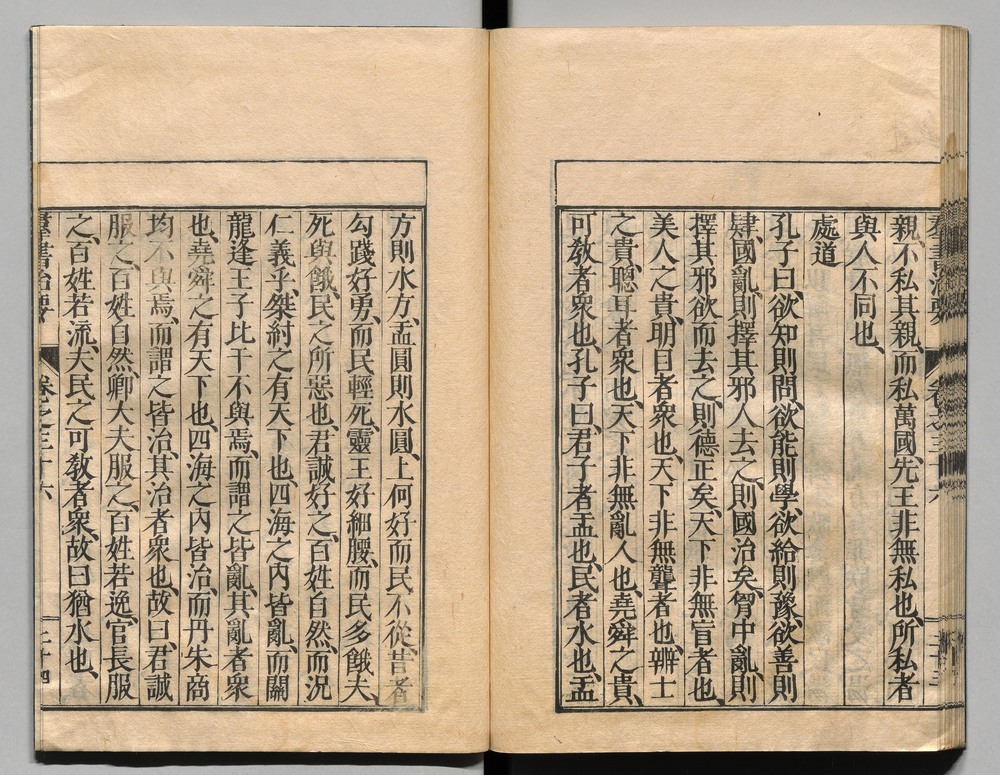 親、不私其親、而私萬國、先王非無私也、所私者
與人不同也、
處道
孔子曰、欲知則問、欲能則學、欲給則豫、欲善則
肄、國亂、則擇其邪人去之、則國治矣、胷中亂、則
擇其邪欲而去之、則德正矣、天下非無盲者也、
美人之貴、明目者衆也、天下非無聾者也、辨士
之貴、聰耳者衆也、天下非無亂人也、堯舜之貴、
可敎者衆也、孔子曰、君子者盂也、民者水也、盂
方則水方、盂圓則水圓、上何好而民不從、昔者
勾踐好勇、而民輕死、靈王好細腰、而民多餓、夫
死與餓、民之所惡也、君誠好之、百姓自然、而況
仁義乎、桀紂之有天下也、四海之內皆亂、而關
龍逢王子比干不與焉、而謂之皆亂、其亂者衆
也、堯舜之有天下也、四海之內皆治、而丹朱商
均不與焉、而謂之皆治、其治者衆也、故曰、君誠
服之、百姓自然、卿大夫服之、百姓若逸、官長服
之、百姓若流、夫民之可敎者衆、故曰猶水也、
羣書治要 卷之三十六 二十四